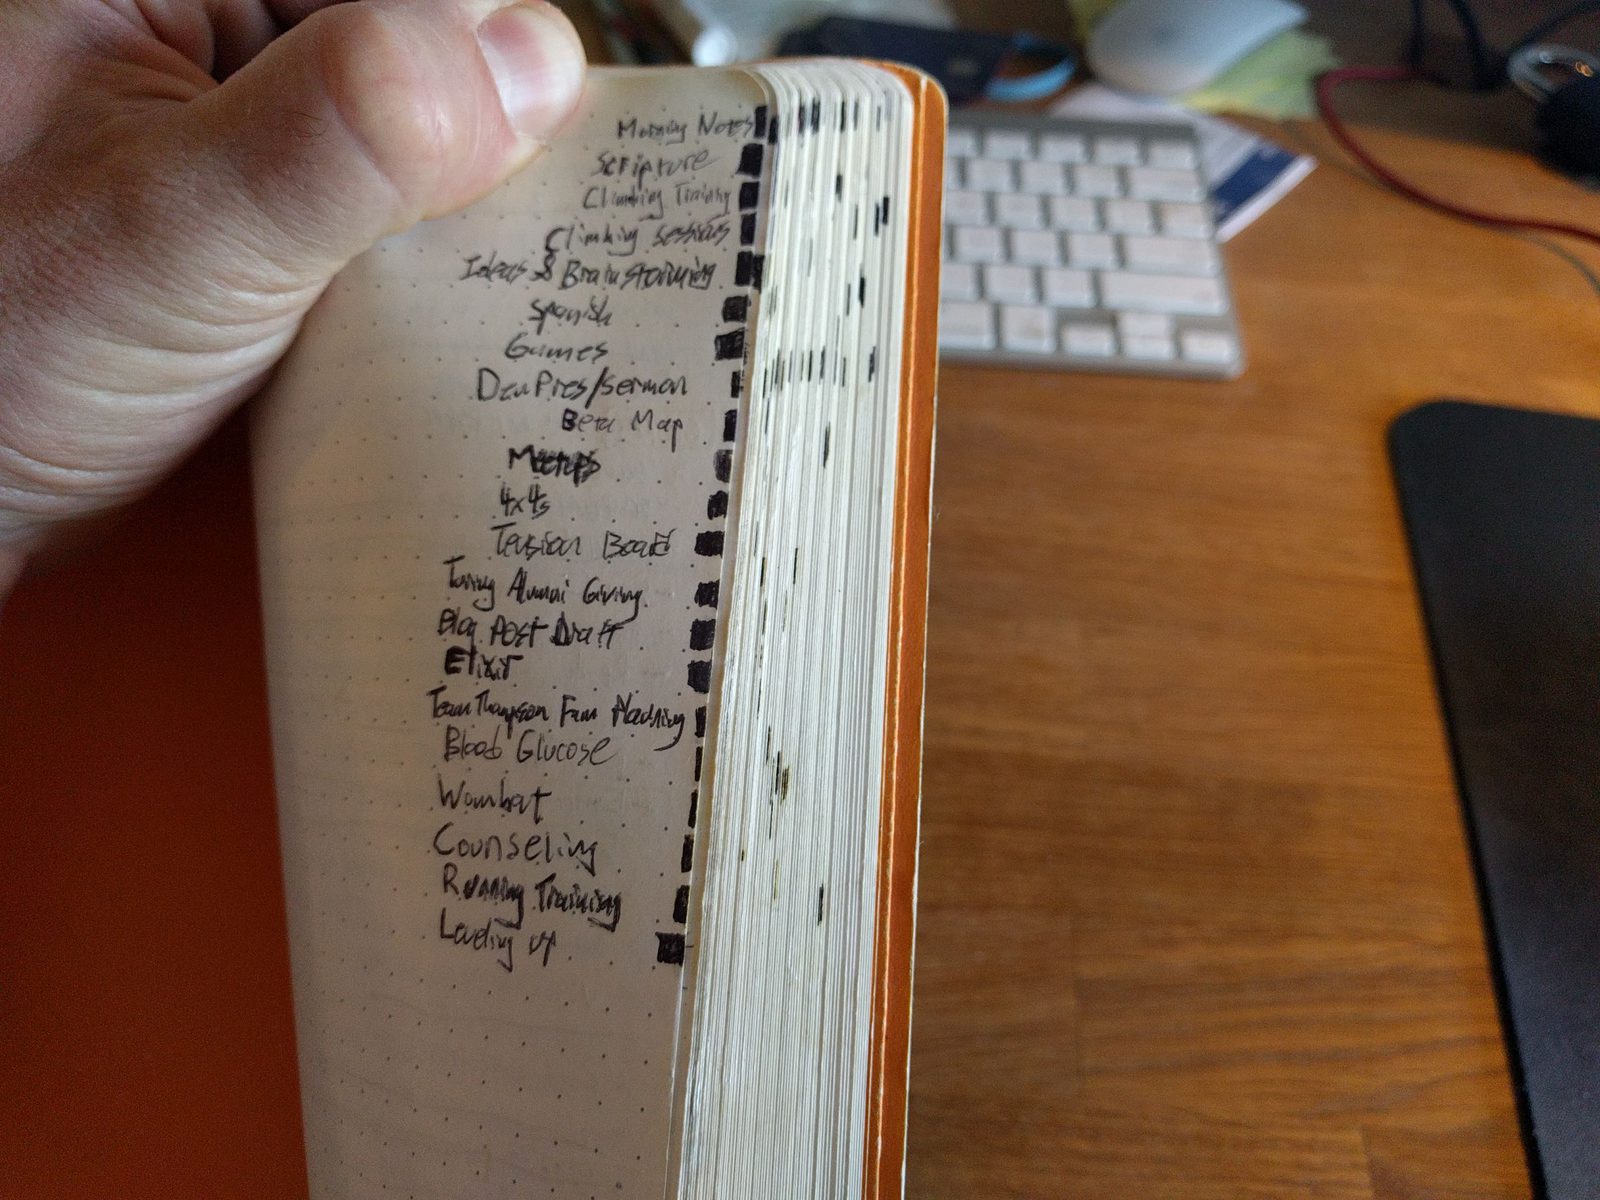 Morning Notes
Scripture
Climbing Training
Climbing Sessions
Ideas & Brainstorming
Spanish
Games
DenPres/Sermon
Beta Map
Meetups
4x4s
Tension Board
Alumni Giving
Blog Post Draft
Elixir
Team Thompson Fam
Blood Glucose
Wombat
Counseling
Running Training
Leveling up